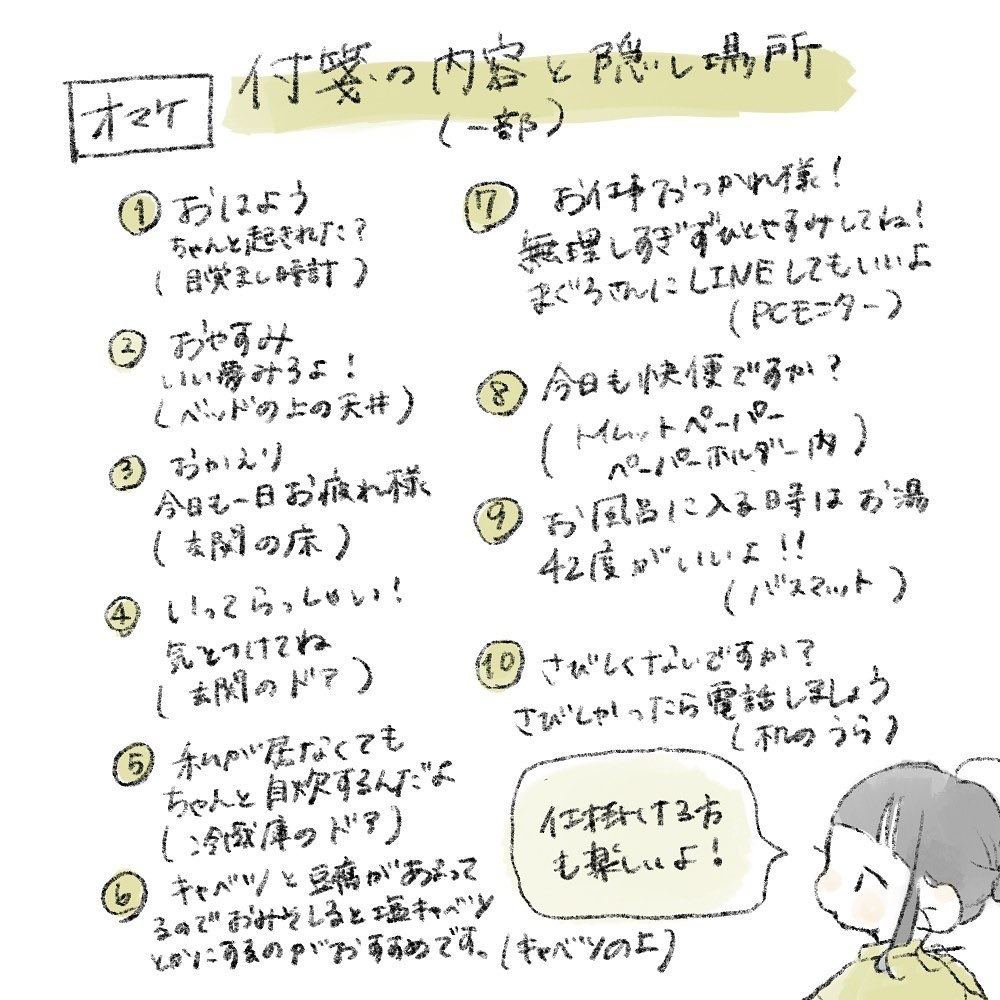 オマケ
付箋の内容と隠し場所
(一部)
① おはよう
ちゃんと起きれた?
(目覚まし時計)
② おやすみ
いい夢みろよ!
(ベッドの上の天井)
③ おかえり
今日も一日お疲れ様
(玄関の床)
④ いってらっしゃい!
気をつけてね
(玄関のドア)
⑤ 私が居なくても
ちゃんと自炊するんだよ
(冷蔵庫のドア)
⑥ キャベツと豆腐があまって
るのでおみそしると塩キャベツ
とかにするのがおすすめです。(キャベツの上)
⑦ お仕事おつかれ様!
無理しすぎずひとやすみしてね!
まぐろさんにLINEしてもいいよ
(PCモニター)
⑧ 今日も快便ですか?
(トイレットペーパー
ペーパーホルダー内)
⑨ お風呂に入る時はお湯
42度がいいよ!!
(バスマット)
⑩ さびしくないですか?
さびしかったら電話しましょう
(机のうら)
仕掛ける方
も楽しいよ!